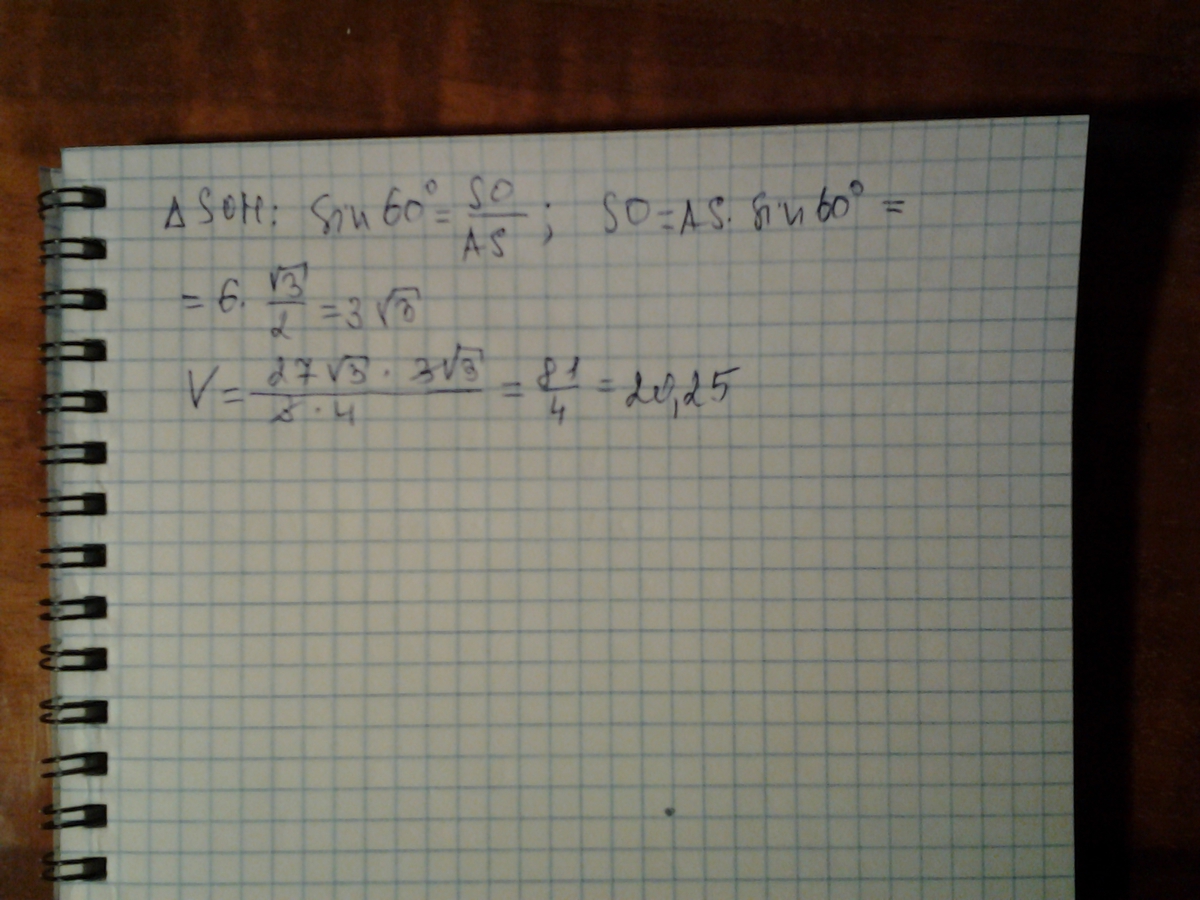 ΔSOH: sin 60° = SO/AS; SO = AS · sin 60° =
= 6 · √3/2 = 3√3
V = 27√3 · 3√3 / 3 · 4 = 81/4 = 20,25